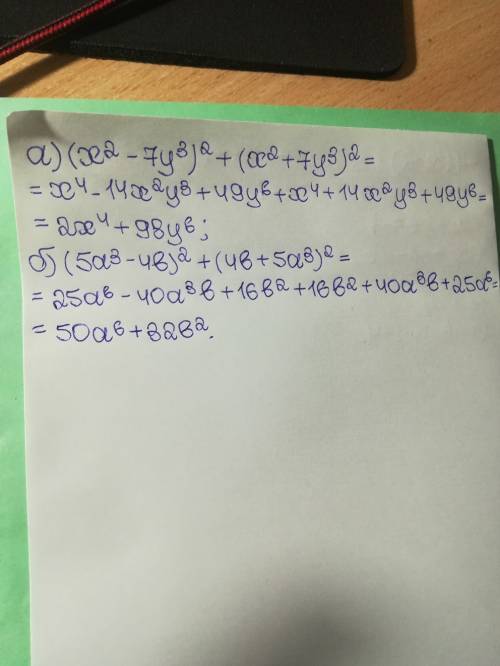 а) (x² - 7y³)² + (x² + 7y³)² =
= x⁴ - 14x²y³ + 49y⁶ + x⁴ + 14x²y³ + 49y⁶ =
= 2x⁴ + 98y⁶;
б) (5a³ - 4b)² + (4b + 5a³)² =
= 25a⁶ - 40a³b + 16b² + 16b² + 40a³b + 25a⁶ =
= 50a⁶ + 32b².